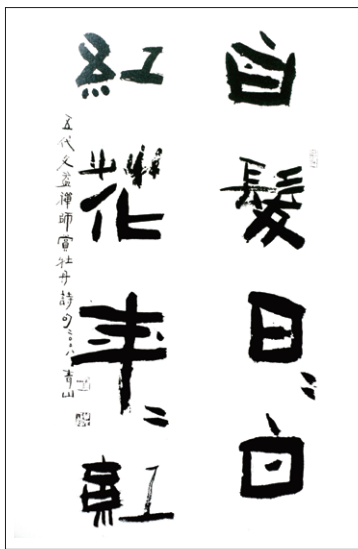 白髮日〻白
紅花年〻紅
五代文益禪師賞牡丹詩句二〇〇八青山